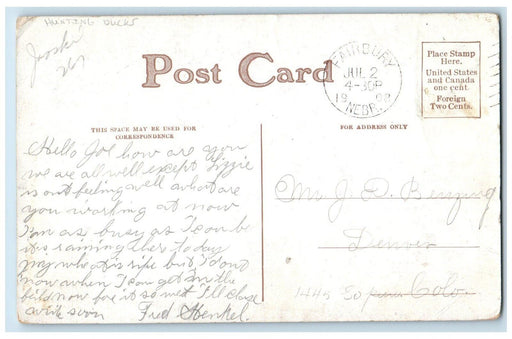 HUNTING DUCKS
267
Post Card
FAIRBURY
JUL 2
4-30P
NEBR.
Place Stamp
Here.
United States
and Canada
one cent.
Foreign
Two Cents.
THIS SPACE MAY BE USED FOR
CORRESPONDENCE
FOR ADDRESS ONLY
Hello Joe how are you
we are all well except Lizzie
is not feeling well what are
you working at now
I'm as busy as I can be
it is raining here today
my wheat is ripe but I don't
now when I can get in the
field now for it so wet I'll close
write soon Fred Henkel.
Mr J. D.
Denver
1445 So Colo.